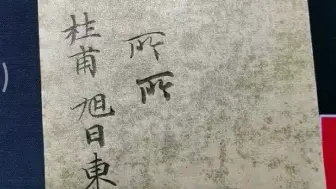 所
所
桂甫旭日東